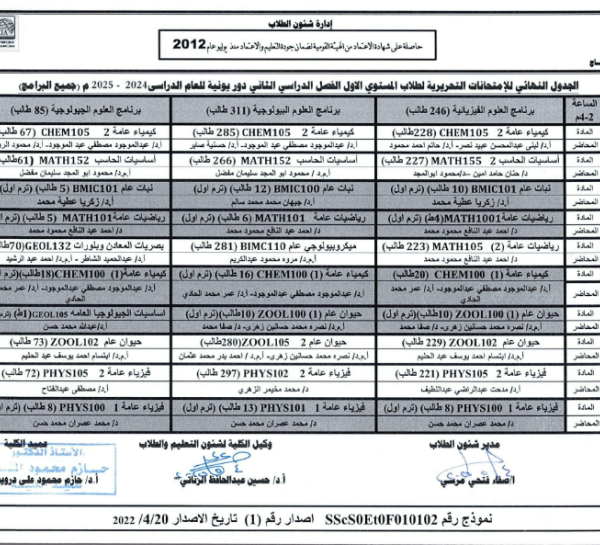 إدارة شئون الطلاب
حاصلة على شهادة الاعتماد من الهيئة القومية لضمان جودة التعليم والاعتماد منذ يوليو عام 2012
الجدول النهائي للإمتحانات التحريرية لطلاب المستوي الاول الفصل الدراسي الثاني دور يونية للعام الدراسى 2024 - 2025 م (جميع البرامج)
الساعة 2-4م
برنامج العلوم الفيزيائية (246 طالب)
برنامج العلوم البيولوجية (311 طالب)
برنامج العلوم الجيولوجية (85 طالب)
المادة كيمياء عامة 2 CHEM105 (228 طالب) كيمياء عامة 2 CHEM105 (285 طالب) كيمياء عامة 2 CHEM105 (67 طالب)
المحاضر أ.د/ لبنى عبدالمحسن عبيد نصر- أ.د/ حاتم احمد محمود أ.د/ عبدالموجود مصطفي عبد الموجود- أ.د/ حسنية صابر أ.د/ عبدالموجود مصطفي عبد الموجود- أ.د/ محمود
المادة أساسيات الحاسب 2 MATH155 (227 طالب) أساسيات الحاسب MATH152 (266 طالب) أساسيات الحاسب MATH152 (61 طالب)
المحاضر د/ حنان حامد امين –د/محمود ابوالمجد أ.م.د/ محمود ابو المجد سليمان مفضل أ.م.د/ محمود ابو المجد سليمان مفضل
المادة نبات عام BMIC101 (10 طالب) (ترم اول) نبات عام BMIC100 (12 طالب) (ترم اول) نبات عام BMIC101 (5 طالب) (ترم اول)
المحاضر أ.د/ زكريا عطية محمد أ.د/ جيهان محمد محمد سالم أ.د/ زكريا عطية محمد
المادة رياضيات عامة MATH1001 (4ط) (ترم اول) رياضيات عامة MATH101 (6 طالب) (ترم اول) رياضيات عامة MATH101 (5 طالب)
المحاضر د/ احمد عبد النافع محمود محمد د/ احمد عبد النافع محمود محمد د/ احمد عبد النافع محمود محمد
المادة رياضيات عامة (2) MATH105 (223 طالب) ميكروبيولوجي عام BIMC110 (281 طالب) بصريات المعادن وبلورات GEOL132 (70طالب)
المحاضر د/ احمد عبد النافع محمود محمد أ.م.د/ مروه محمود عبدالكريم أ.د/ عبدالحميد الشاطر – أ.م.د/ احمد عبد الرشيد
المادة كيمياء عامة (1) CHEM100 (20طالب) كيمياء عامة (1) CHEM100 (16 طالب) (ترم اول) كيمياء عامة (1) CHEM100 (18طالب) (ترم اول)
المحاضر أ.د/ عبدالموجود مصطفي عبدالموجود- أ.د/ عمر محمد الحادي أ.د/ عبدالموجود مصطفي عبدالموجود- أ.د/ عمر محمد الحادي أ.د/ عبدالموجود مصطفي عبدالموجود- أ.د/ عمر محمد الحادي
المادة حيوان عام ZOOL100 (1) (10طالب) (ترم اول) حيوان عام ZOOL100 (1) (10طالب) (ترم اول) أساسيات الجيولوجيا العامه GEOL105 (1ط)
المحاضر أ.م.د/ نصره محمد حسانين زهرى- د/ صفا محمد أ.م.د/ نصره محمد حسانين زهرى- د/ صفا محمد أ.د/ عبدالله محمد حسن
المادة حيوان عام ZOOL102 (229 طالب) حيوان عام 2 ZOOL105 (280طالب) حيوان عام ZOOL102 (73 طالب)
المحاضر أ.م.د/ ابتسام احمد يوسف عبد الحليم أ.م.د/ نصره محمد حسانين زهرى- أ.م.د/ احمد بدر محمد عثمان أ.م.د/ ابتسام احمد يوسف عبد الحليم
المادة فيزياء عامة 2 PHYS105 (221 طالب) فيزياء عامة 2 PHYS102 (297 طالب) فيزياء عامة 2 PHYS105 (72 طالب)
المحاضر أ.د/ مدحت عبدالراضي عبداللطيف د/ محمد مخيمر الزهري أ.د/ مصطفى عبدالفتاح
المادة فيزياء عامة 1 PHYS100 (8 طالب) (ترم اول) فيزياء عامة 1 PHYS101 (13 طالب) (ترم اول) فيزياء عامة 1 PHYS100 (8 طالب) (ترم اول)
المحاضر د/ محمد عصران محمد حسن د/ محمد عصران محمد حسن د/ محمد عصران محمد حسن
مدير شئون الطلاب وكيل الكلية لشئون التعليم والطلاب عميد الكلية
الأستاذ الدكتور
حازم محمود
أ/صفاء فتحي مرسي أ.د/ حسين عبدالحافظ الزناتي أ.د/ حازم محمود على درويش
نموذج رقم SScS0Et0F010102 اصدار رقم (1) تاريخ الاصدار 2022 /4/20